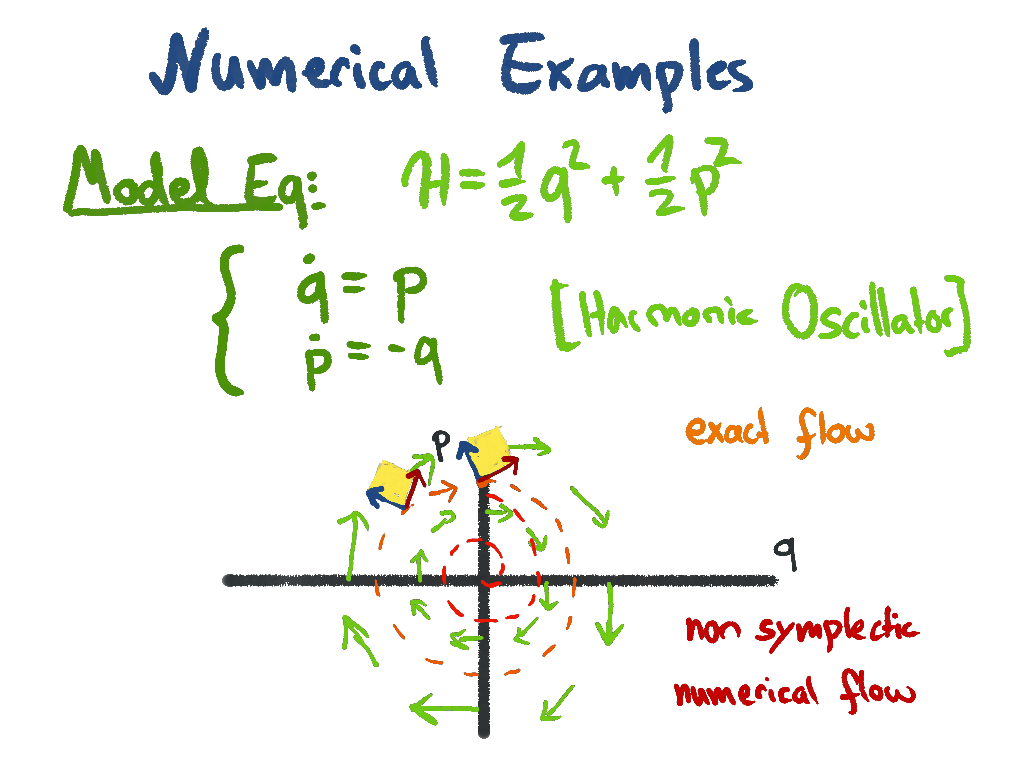 Numerical Examples
Model Eq: H = 1/2 q² + 1/2 p²
{ q̇ = p
ṗ = -q
[Harmonic Oscillator]
exact flow
p
q
non symplectic
numerical flow